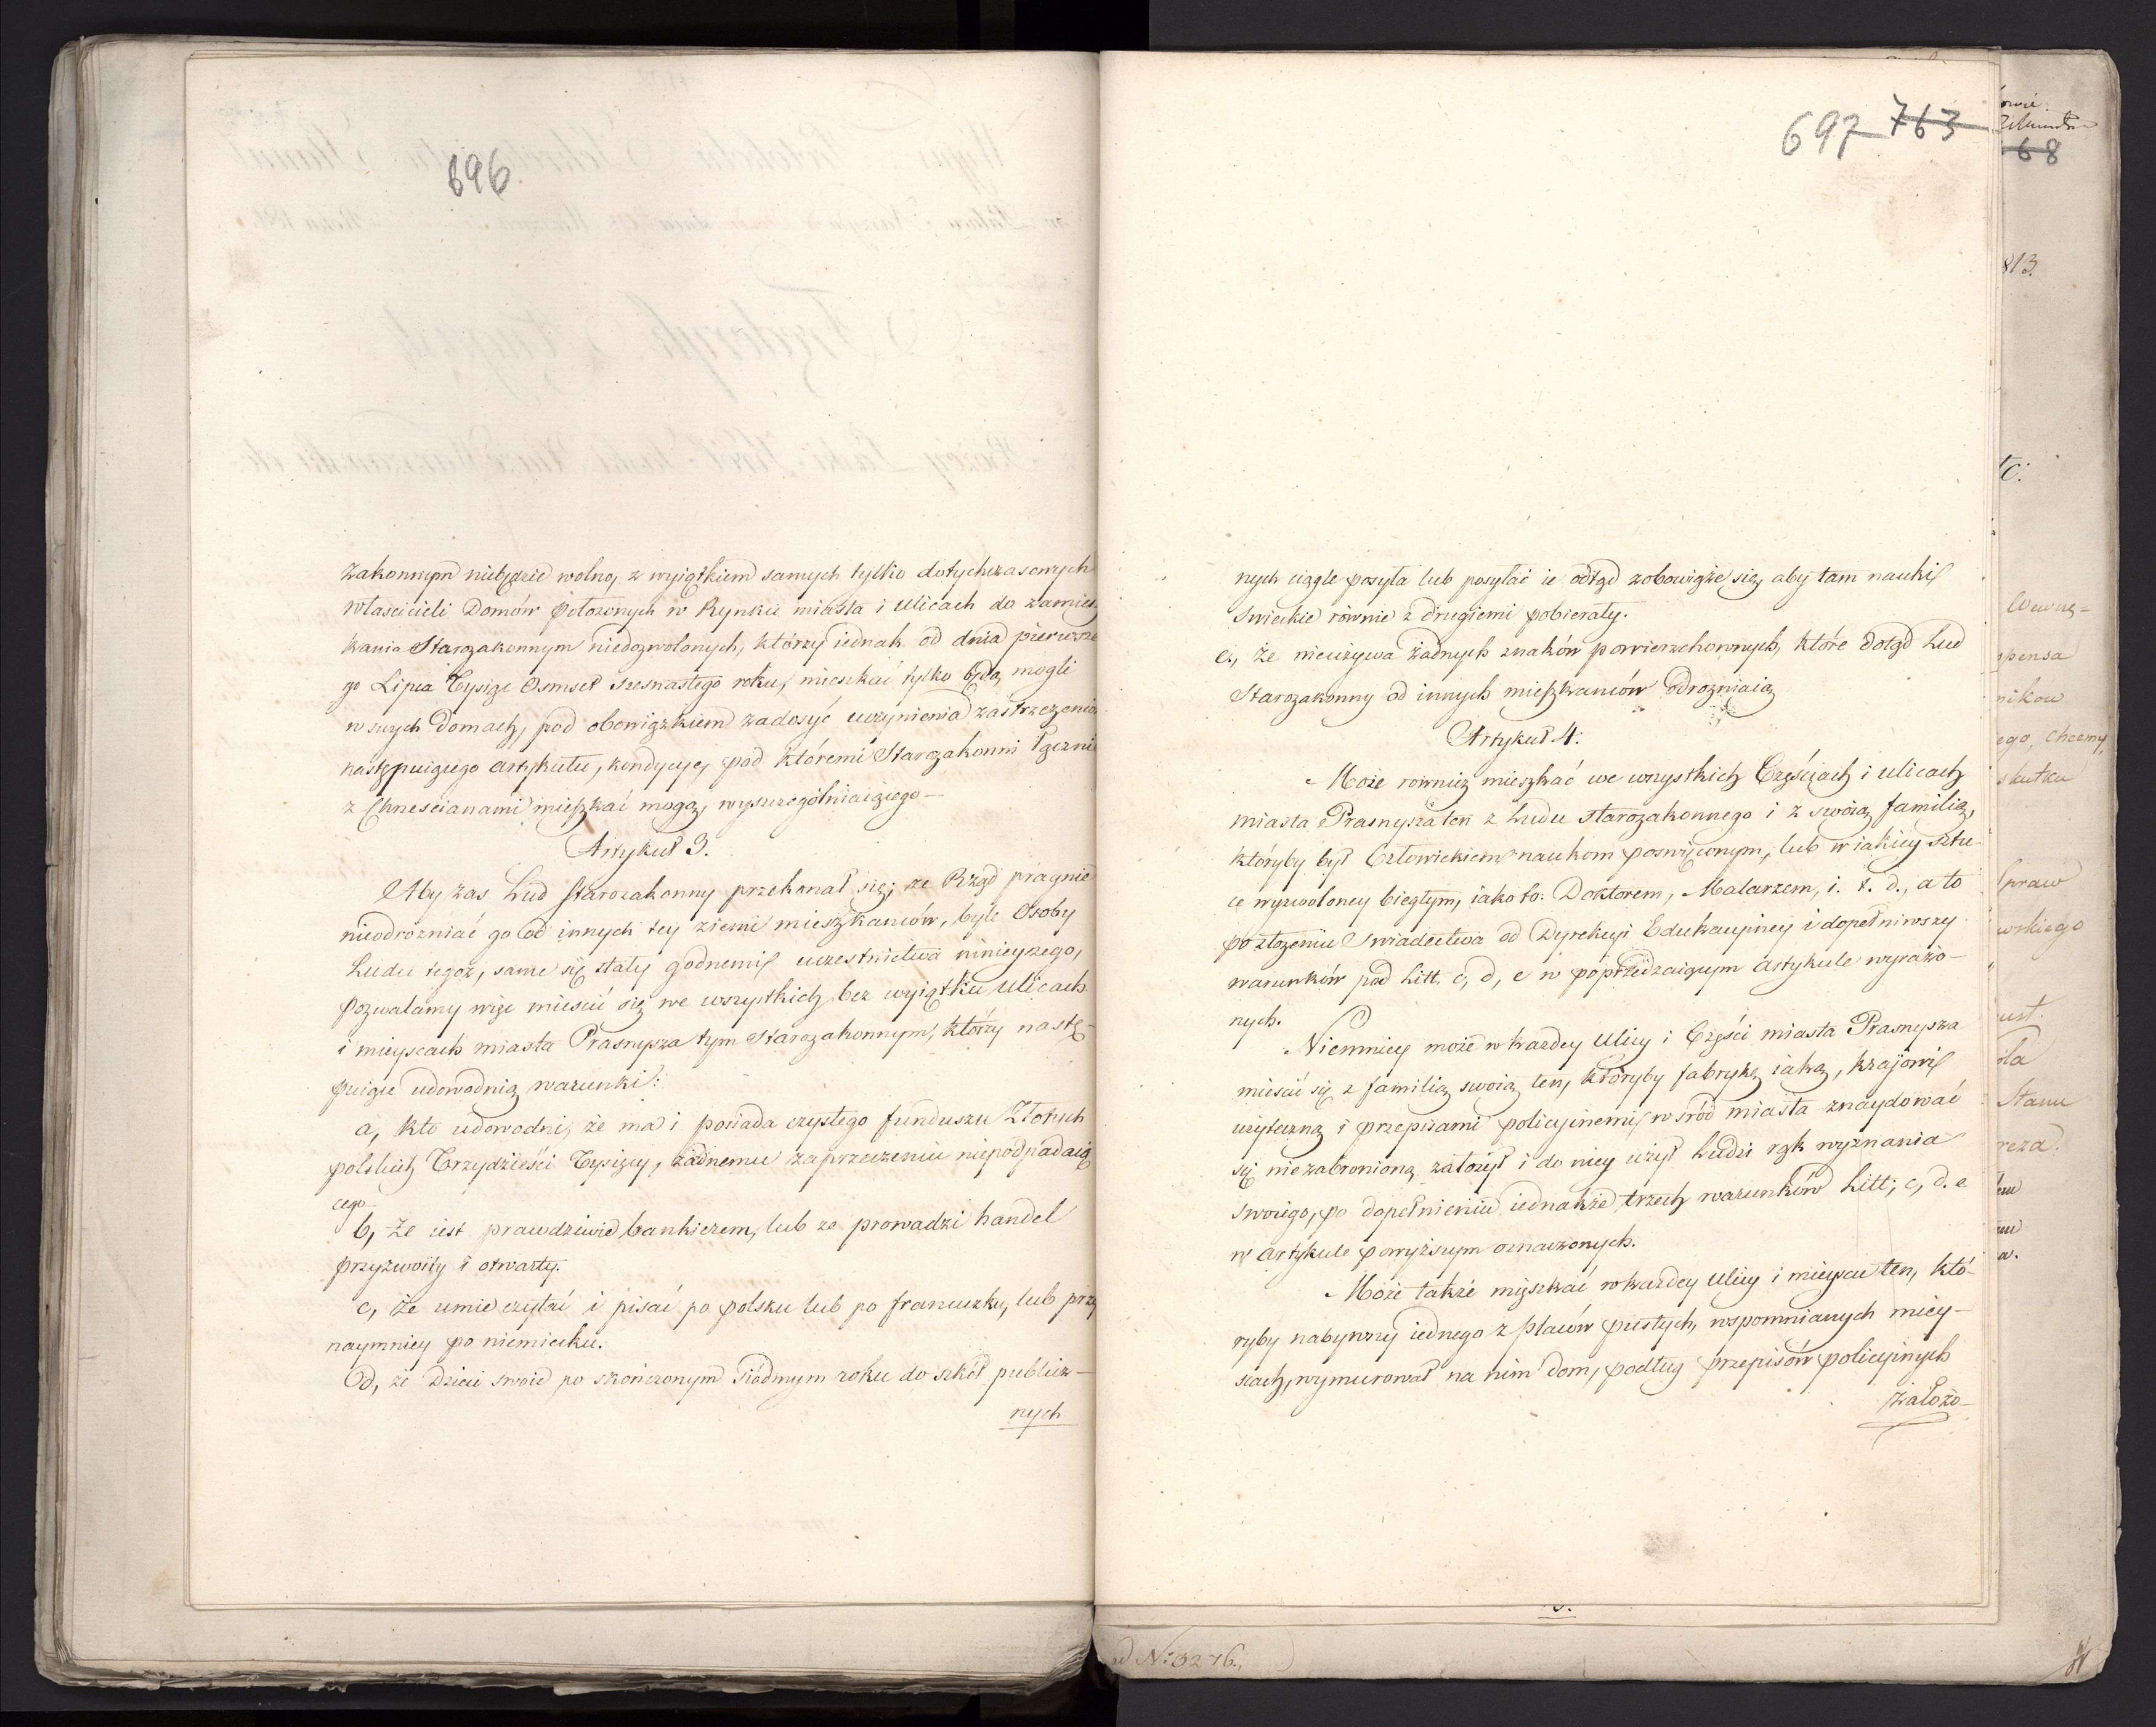 696
zakonnym niebędzie wolno, z wyiątkiem samych tylko dotychczasowych
właścicieli Domów położonych w Rynku miasta i Ulicach do zamiesz
kania Starozakonnym niedozwolonych, którzy iednak od dnia pierwsze
go Lipca Tysiąc Osmset szesnastego roku, mieszkać tylko będą mogli
w swych Domach, pod obowiązkiem zadosyć uczynienia zastrzeżeniom
następuiącego artykułu, kondycye, pod któremi Starozakonni łącznie
z Chrześcianami mieszkać mogą, wyszczególniaiącego —
Artykuł 3.
Aby zas Lud starozakonny przekonał się, że Rząd pragnie
nieodróżniać go od innych tey ziemi mieszkańców, byle Osoby
Ludu tegoż, same się stały godnemi uczestnictwa ninieyszego,
pozwalamy więc mieścić się we wszystkich bez wyiątku Ulicach
i mieyscach miasta Prasnysza tym Starozakonnym, którzy nastę-
puiące udowodnią warunki:
a, kto udowodni, że ma i posiada czystego funduszu Złotych
polskich Trzydzieści Tysięcy, żadnemu zaprzeczeniu niepodpadaią
cego
b, że iest prawdziwie bankierem, lub że prowadzi handel
przyzwoity i otwarty.
c, że umie czytać i pisać po polsku lub po francuzku, lub przy
naymniey po niemiecku.
d, że Dzieci swoie po skończonym siódmym roku do szkół publicz-
nych
697 763
nych ciągle posyła lub posyłać ie odtąd zobowiąże się, aby tam nauki
swieckie równie z drugiemi pobierały.
e, że nieużywa żadnych znaków powierzchownych, które dotąd Lud
Starozakonny od innych mieszkańców odrozniaią
Artykuł 4.
Może rownież mieszkać we wszystkich Częściach i ulicach
miasta Prasnysza ten z Ludu starozakonnego i z swoią familią,
któryby był Człowiekiem naukom poswięconym, lub w iakiey sztu-
ce wyzwoloney biegłym, iako to: Doktorem, Malarzem, i. t. d., a to
po złożeniu Swiadectwa od Dyrekcyi Edukacyiney i dopełniwszy
warunków pod Litt. c, d, e w poprzedzaiącym artykule wyrażo-
nych.
Niemniey może w każdey Ulicy i Części miasta Prasnysza
mieścić się z familią swoią ten, któryby fabrykę iaką, krajowi
użyteczną i przepisami policyinemi wśród miasta znaydować
się niezabronioną założył i do niey użył Ludzi rąk wyznania
swoiego, po dopełnieniu iednakże trzech warunków Litt; c, d. e
w artykule powyższym oznaczonych.
Może także mięszkać w każdey Ulicy i mieyscu ten, któ-
ryby nabywszy iednego z placów pustych, wspomnianych miey-
scach, wymurował na nim dom, podług przepisów policyinych
założo-
68
813.
Wewnę-
nikow
ego, Chcemy,
skutku
praw
wskiego
Stanu
Nº 3276.